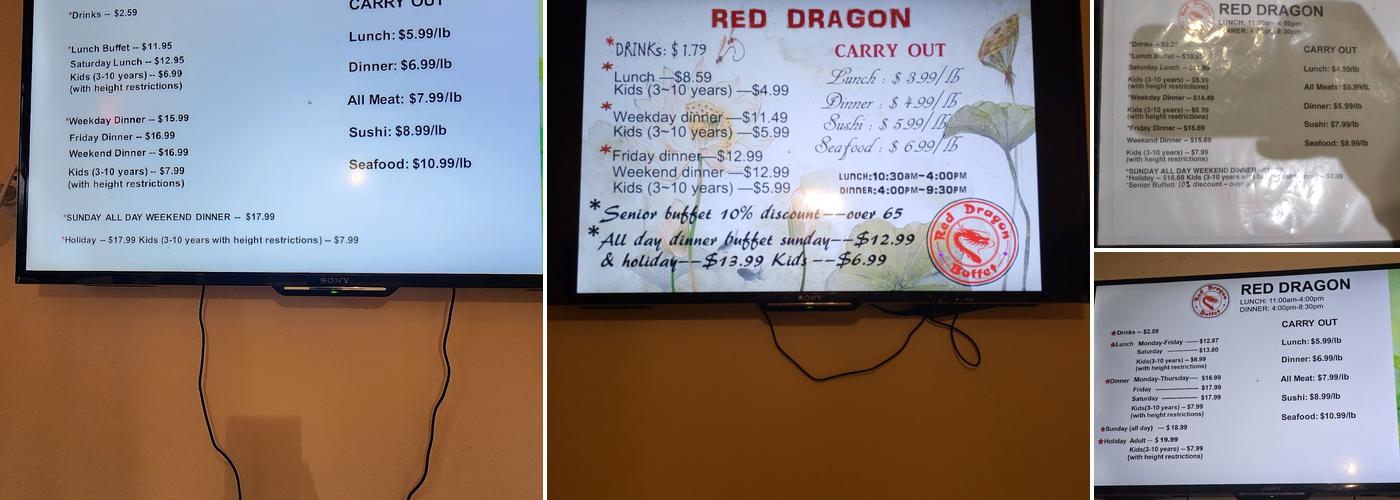 *Drinks -- $2.59
*Lunch Buffet -- $11.95
Saturday Lunch -- $12.95
Kids (3-10 years) -- $6.99
(with height restrictions)
*Weekday Dinner -- $15.99
Friday Dinner -- $16.99
Weekend Dinner -- $16.99
Kids (3-10 years) -- $7.99
(with height restrictions)
CARRY OUT
Lunch: $5.99/lb
Dinner: $6.99/lb
All Meat: $7.99/lb
Sushi: $8.99/lb
Seafood: $10.99/lb
*SUNDAY ALL DAY WEEKEND DINNER -- $17.99
*Holiday -- $17.99 Kids (3-10 years with height restrictions) -- $7.99
SONY
RED DRAGON
*DRINKs: $1.79
*
Lunch —$8.59
Kids (3~10 years) —$4.99
*
Weekday dinner—$11.49
Kids (3~10 years) —$5.99
*
Friday dinner—$12.99
Weekend dinner—$12.99
Kids (3~10 years) —$5.99
CARRY OUT
Lunch : $ 3.99/lb
Dinner : $ 4.99/lb
Sushi : $ 5.99/lb
Seafood : $ 6.99/lb
LUNCH:10:30AM-4:00PM
DINNER:4:00PM-9:30PM
*Senior buffet 10% discount--over 65
*All day dinner buffet sunday--$12.99
& holiday--$13.99 Kids --$6.99
Red Dragon
Buffet
SONY
RED DRAGON
LUNCH: 11:00am-4:00pm
*Drinks --
*Lunch Buffet --
Saturday Lunch --
Kids (3-10 years) -- $5.99
(with height restrictions)
*Weekday Dinner -- $14.49
Kids (3-10 years) -- $6.99
(with height restrictions)
*Friday Dinner -- $15.69
Weekend Dinner -- $15.69
Kids (3-10 years) -- $7.99
(with height restrictions)
CARRY OUT
Lunch: $4.99/lb
All Meats: $5.99/lb
Dinner: $5.99/lb
Sushi: $7.99/lb
Seafood: $8.99/lb
*SUNDAY ALL DAY WEEKEND DINNER
*Holiday -- $16.69 Kids (3-10 years $7.99
*Senior Buffett 10% discount -- over
Red Dragon
Buffet
RED DRAGON
LUNCH: 11:00am-4:00pm
DINNER: 4:00pm-8:30pm
Drinks -- $2.59
Lunch Monday-Friday ------ $12.87
Saturday -------------- $13.80
Kids(3-10 years) -- $6.99
(with height restrictions)
Dinner Monday-Thursday---- $16.99
Friday -------------------- $17.99
Saturday --------------- $17.99
Kids(3-10 years) -- $7.99
(with height restrictions)
Sunday (all day) --- $18.99
Holiday Adult -- $19.99
Kids(3-10 years) -- $7.99
(with height restrictions)
CARRY OUT
Lunch: $5.99/lb
Dinner: $6.99/lb
All Meat: $7.99/lb
Sushi: $8.99/lb
Seafood: $10.99/lb
SONY